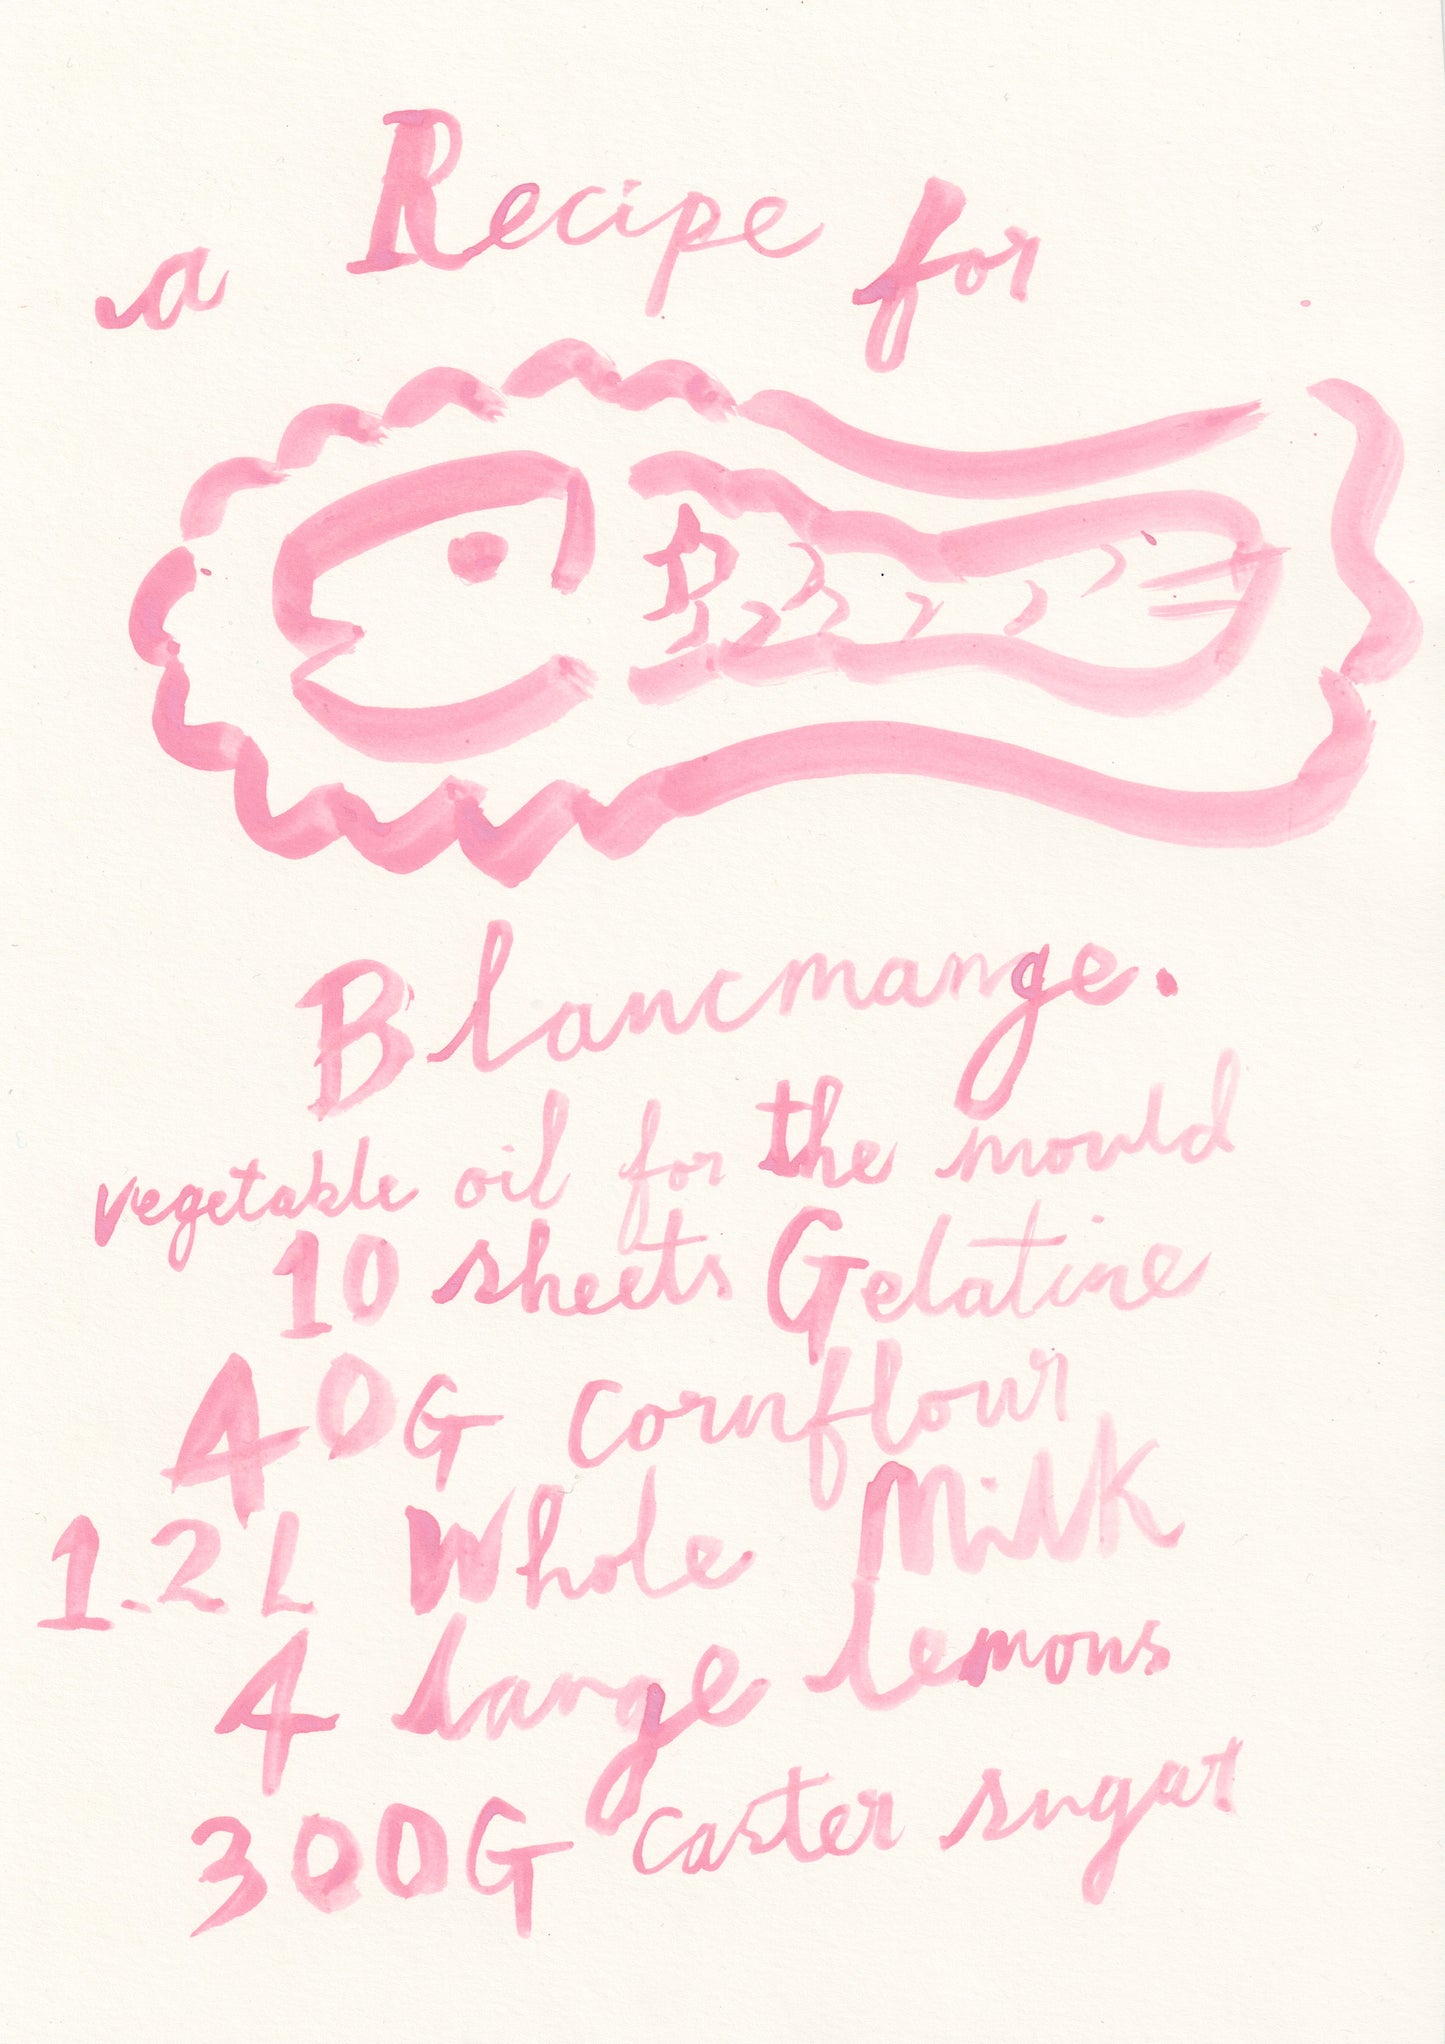 a Recipe for
Blancmange.
vegetable oil for the mould
10 sheets Gelatine
40G cornflour
1.2L Whole Milk
4 large lemons
300G caster sugar